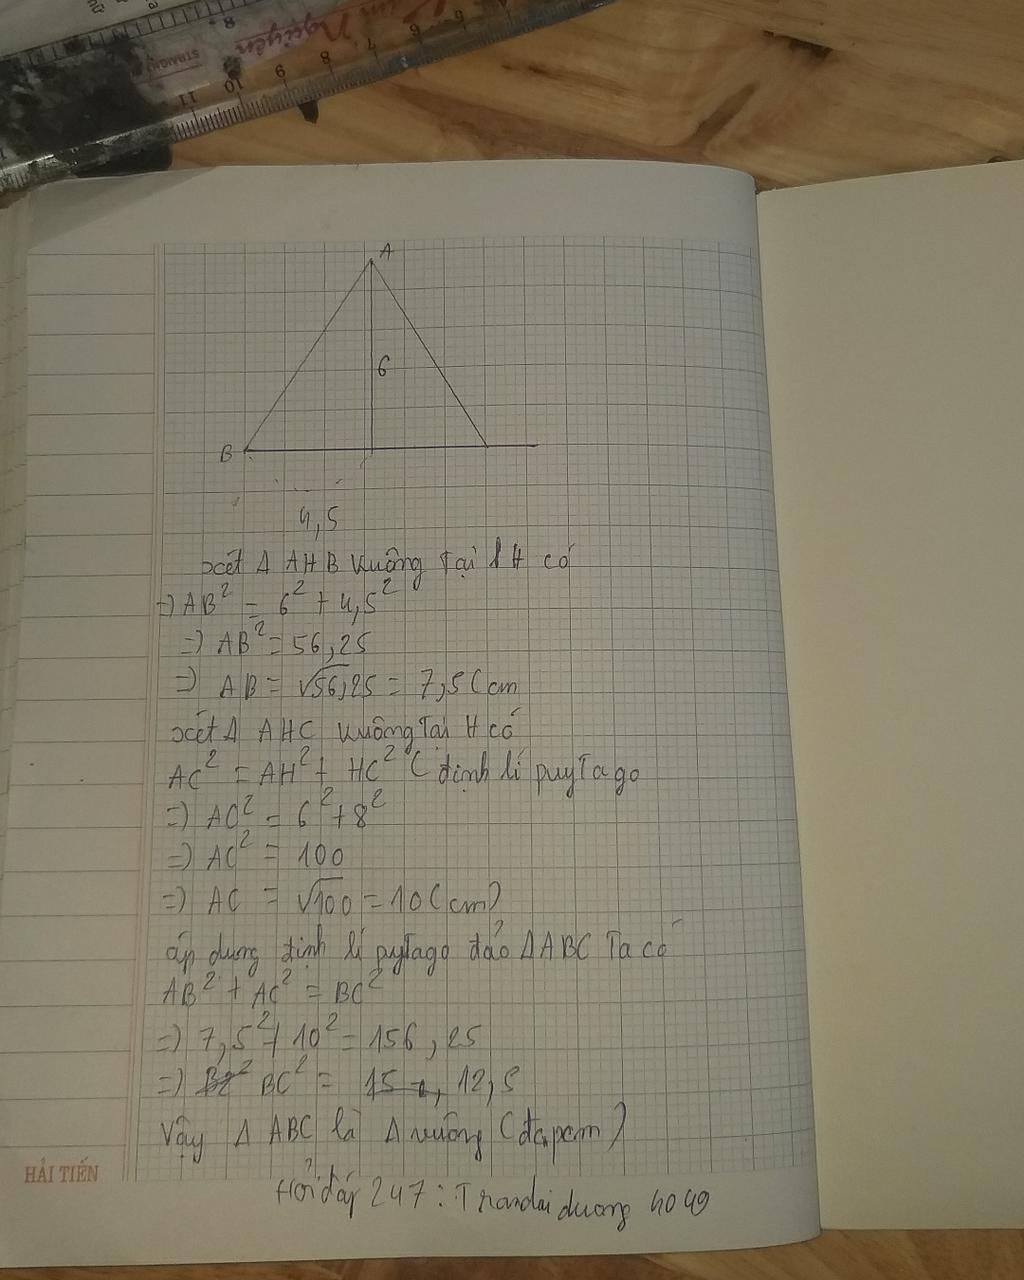 Nguyên
STRAIGHT
11 10 9 8 7 6 5
8
A
6
B
4,5
xét Δ AHB vuông tại H có
=> AB² = 6² + 4,5²
=> AB² = 56,25
=> AB = √56,25 = 7,5 (cm
xét Δ AHC vuông tại H có
AC² = AH² + HC² ( định lí puytago
=> AC² = 6² + 8²
=> AC² = 100
=> AC = √100 = 10 (cm)
áp dụng định lí pytago đảo ΔABC ta có
AB² + AC² = BC²
=> 7,5² + 10² = 156,25
=> BC² = 12,5
Vậy Δ ABC là Δ vuông (đapcm)
HẢI TIẾN
Hỏi đáp 247 : Trandaiduong 4049